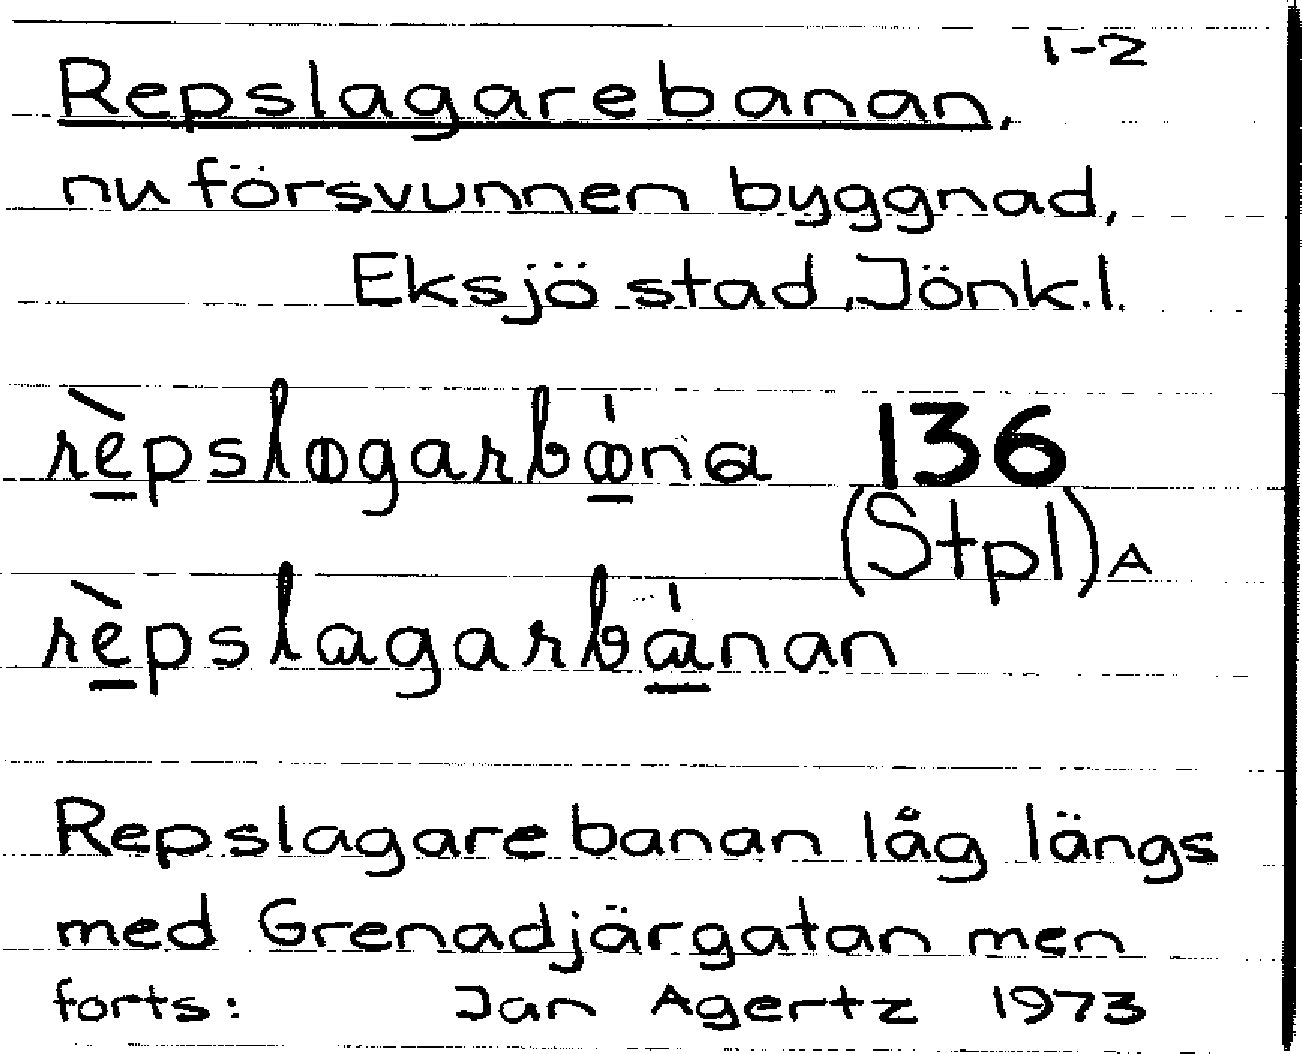 1-2
Repslagarebanan,
nu försvunnen byggnad,
Eksjö stad, Jönk.l.
136
(Stpl)A
Repslagarebanan låg längs
med Grenadjärgatan men
forts: Jan Agertz 1973